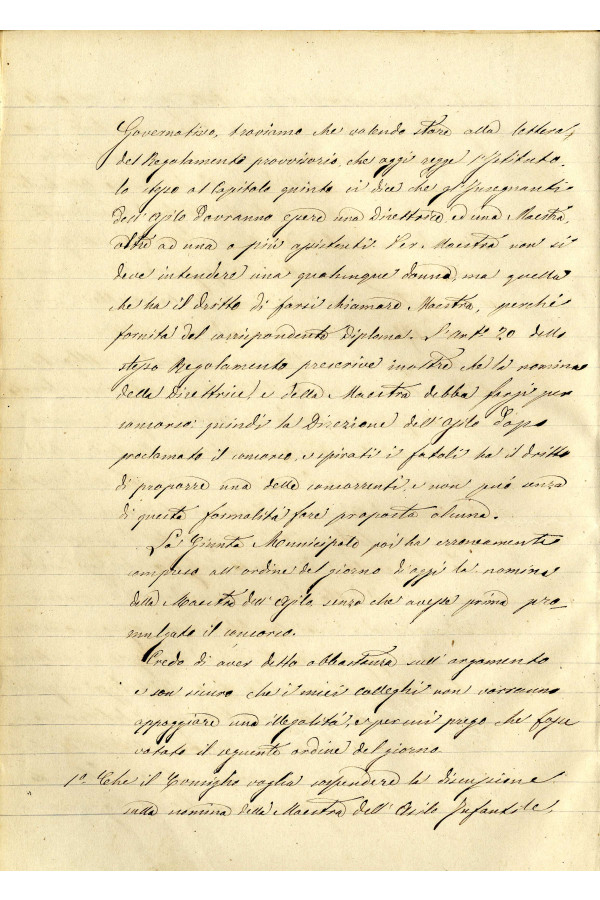 Governativo, troviamo che volendo stare alla lettera,
del Regolamento provvisorio, che oggi regge l'Istituto.
lo stesso al Capitolo quinto ci dice che gl'Insegnanti
dell'Asilo dovranno essere una Direttrice ed una Maestra,
oltre ad una o più assistenti. Per Maestra non si
deve intendere una qualunque donna, ma quella
che ha il dritto di farsi chiamare Maestra, perchè
fornita del corrispondente Diploma. L'Art.º 20 dello
stesso Regolamento prescrive inoltre che la nomina
della Direttrice e della Maestra debba farsi per
concorso; quindi la Direzione dell'Asilo dopo
proclamato il concorso, e spirati i fatali ha il dritto
di proporre una delle concorrenti, e non può senza
di questa formalità fare proposta alcuna.
La Giunta Municipale poi ha erroneamente
compreso all'ordine del giorno di oggi la nomina
della Maestra dell'Asilo, senza che avesse prima pro-
mulgato il concorso.
Credo di aver detto abbastanza sull'argomento
e son sicuro che i miei colleghi non vorranno
appoggiare una illegalità, e per cui prego che fosse
votato il seguente ordine del giorno
1º Che il Consiglio voglia sospendere la discussione
sulla nomina della Maestra dell'Asilo Infantile,